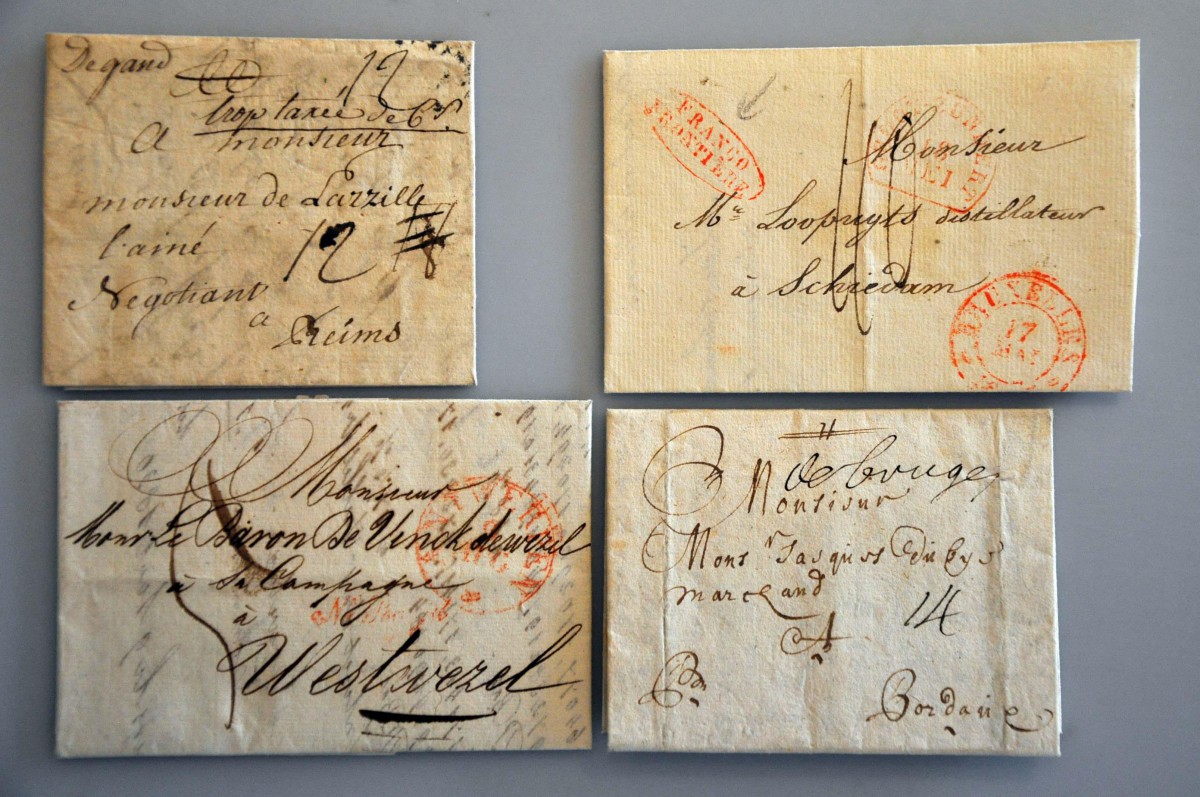 Degand
12
trop taxée de 6
A monsieur
monsieur de Larzille
l'ainé
12
Negotiant
a
Reims
FRANCO
FRONTIÈRE
Monsieur
Mr Loopuyts distillateur
à Schiedam
BRUXELLES
17
MAI
Monsieur
Monsr Le Baron De Vinck dewezel
à Sa Campagne
à
Westwezel
de bruges
Monsieur
Monsr Jasques
marchand
14
A
Bordaue